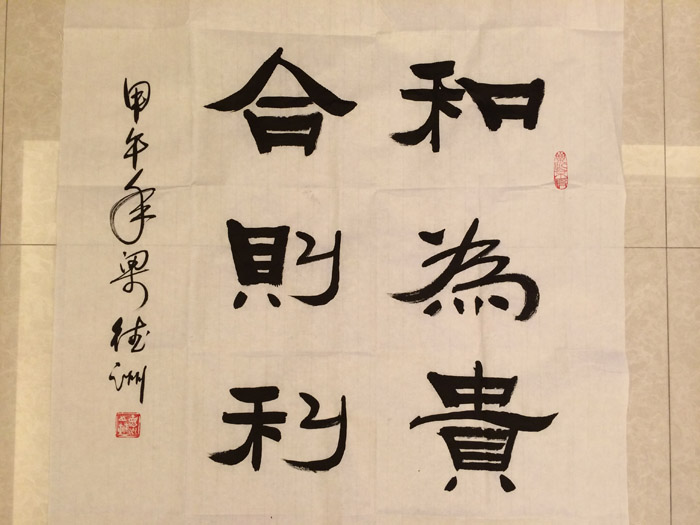 和為貴
合則利
甲午年梁德洲